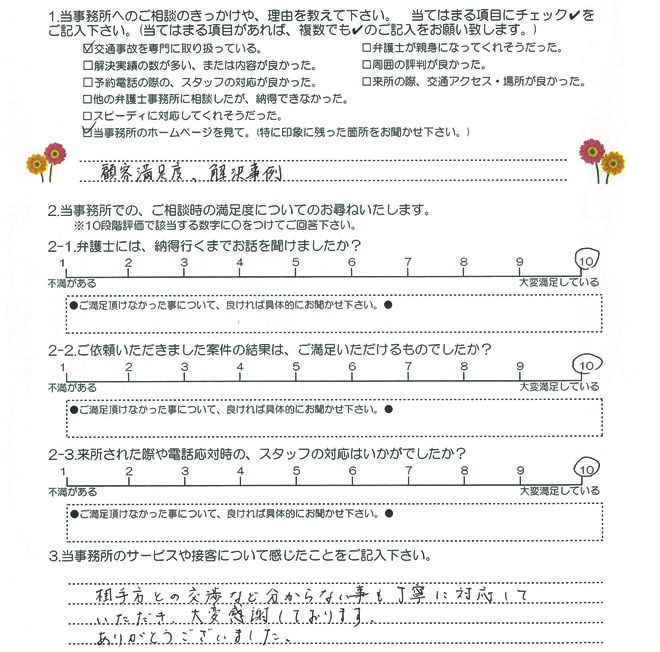 1.当事務所へのご相談のきっかけや、理由を教えて下さい。 当てはまる項目にチェック✔を
ご記入下さい。(当てはまる項目があれば、複数でも✔のご記入をお願い致します。)
☑交通事故を専門に取り扱っている。 □弁護士が親身になってくれそうだった。
□解決実績の数が多い、または内容が良かった。 □周囲の評判が良かった。
□予約電話の際の、スタッフの対応が良かった。 □来所の際、交通アクセス・場所が良かった。
□他の弁護士事務所に相談したが、納得できなかった。
□スピーディに対応してくれそうだった。
☑当事務所のホームページを見て。(特に印象に残った箇所をお聞かせ下さい。)
顧客満足度、解決事例
2.当事務所での、ご相談時の満足度についてのお尋ねいたします。
※10段階評価で該当する数字に○をつけてご回答下さい。
2-1.弁護士には、納得行くまでお話を聞けましたか？
1 2 3 4 5 6 7 8 9 10
不満がある 大変満足している
●ご満足頂けなかった事について、良ければ具体的にお聞かせ下さい。●
2-2.ご依頼いただきました案件の結果は、ご満足いただけるものでしたか？
1 2 3 4 5 6 7 8 9 10
不満がある 大変満足している
●ご満足頂けなかった事について、良ければ具体的にお聞かせ下さい。●
2-3.来所された際や電話応対時の、スタッフの対応はいかがでしたか？
1 2 3 4 5 6 7 8 9 10
不満がある 大変満足している
●ご満足頂けなかった事について、良ければ具体的にお聞かせ下さい。●
3.当事務所のサービスや接客について感じたことをご記入下さい。
相手方との交渉など分からない事も丁寧に対応して
いただき、大変感謝しております。
ありがとうございました。